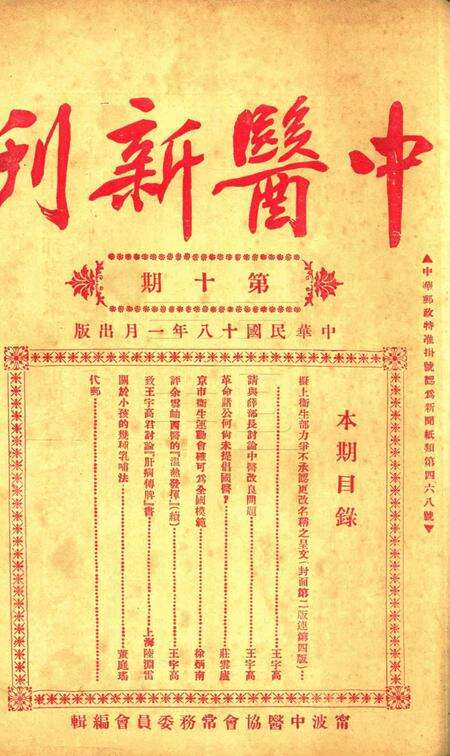 中醫新刊
第十期
中華民國十八年一月出版
▲中華郵政特准掛號認爲新聞紙類第四六八號▼
本期目錄
擬上衞生部力爭不承認更改名稱之呈文(封面第二版連第四版)…王宇高
請與薛部長討論中醫改良問題…王宇高
革命諸公何尙未提倡國醫?…莊雲廬
京市衞生運動會確可爲全國模範…徐炳南
評余雲岫西醫的『溫熱發揮』(續)…王宇高
致王宇高君討論『肝病傳脾』書…上海陸淵雷
關於小孩的幾種乳哺法…董庭瑤
代郵…
甯波中醫協會常務委員會編輯